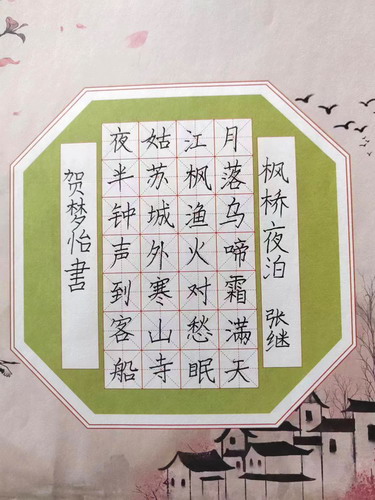 枫桥夜泊 张继
月落乌啼霜满天
江枫渔火对愁眠
姑苏城外寒山寺
夜半钟声到客船
贺梦怡書